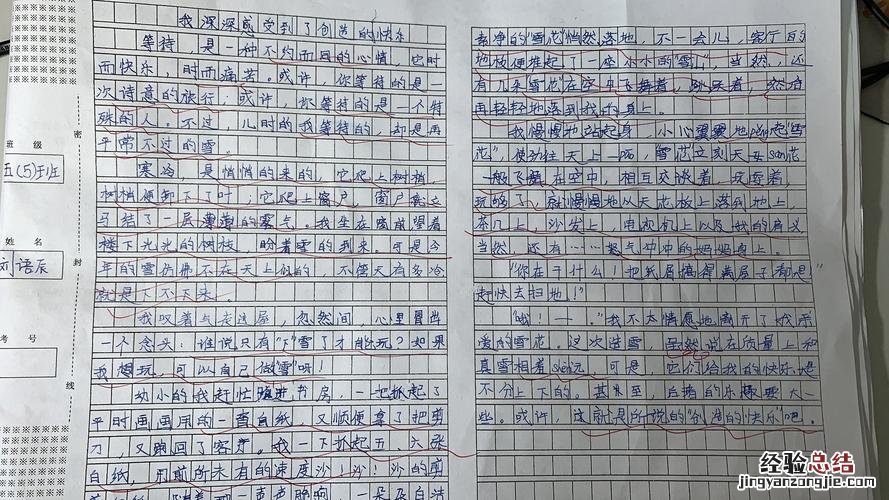 我深深感受到了创造的快乐
等待,是一种不约而同的心情,它时
而快乐,时而痛苦。或许,你等待的是一
次诗意的旅行;或许,你等待的是一个特
殊的人。不过,儿时的我等待的,却是再
平常不过的雪。
寒冷,是悄悄的来的,它爬上树梢,
树梢便卸下了叶;它爬上窗户,窗户就立
马结了一层薄薄的雾气。我坐在窗前望着
楼下光光的树枝,盼着雪的到来,可是今
年的雪仿佛不在天上似的,不管天有多冷
就是下不下来。
我叹着气走进屋,忽然间,心里冒出
一个念头:谁说只有"下"雪了才能玩?如果
我想玩,可以自己"做雪"呀!
幼小的我赶忙蹿进书房,一把抓起了
平时画画用的一沓白纸,又顺便拿了把剪
刀,又跑回了客厅。我一下抓起五、六张
白纸,用前所未有的速度沙!沙!沙的剪
一朵朵白洁
素净的"雪花"悄然落地,不一会儿,客厅的
地板便堆起了一座小小的"雪山",当然,还
有几朵"雪花"在空中飞舞着,跳跃着,然后
再轻轻地落到我的身上。
我慢慢地站起身,小心翼翼地pěng起"雪
花",使劲往天上一pāo,"雪花"立刻天女sàn花
一般飞舞在空中,相互交谈着,玩耍着,
玩够了,就慢慢地从天花板上落到地上,
茶几上,沙发上,电视机上以及我的肩上
当然,还有……怒气冲冲的妈妈身上。
"你在干什么!把纸屑搞得满屋子都是"
赶快去扫地!"
"哦!一。"我不太情愿地离开了我亲
爱的雪花。这次造雪,虽然说在质量上和
真雪相差shèn远,可是,它们给我的快乐是
不分上下的。甚至,自捣的乐趣要大一
些。或许,这就是所说的"创造的快乐"吧。
班级
五(5)班
姓名
刘语辰
考号
密
封
线
经验总结
jingyanzongjie.com